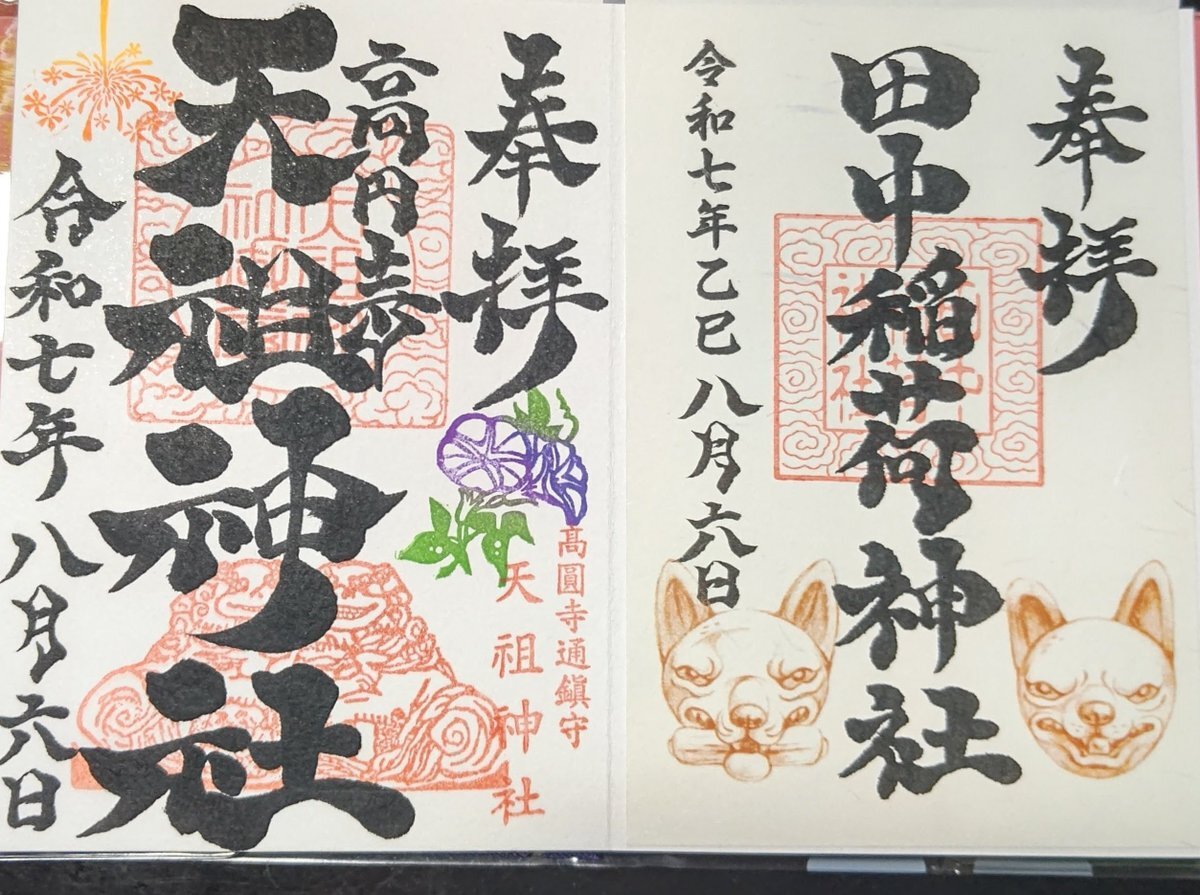 奉拝
田中稲荷神社
令和七年乙巳 八月六日
奉拝
高円寺
天祖神社
令和七年 八月六日
髙圓寺通鎮守
天祖神社